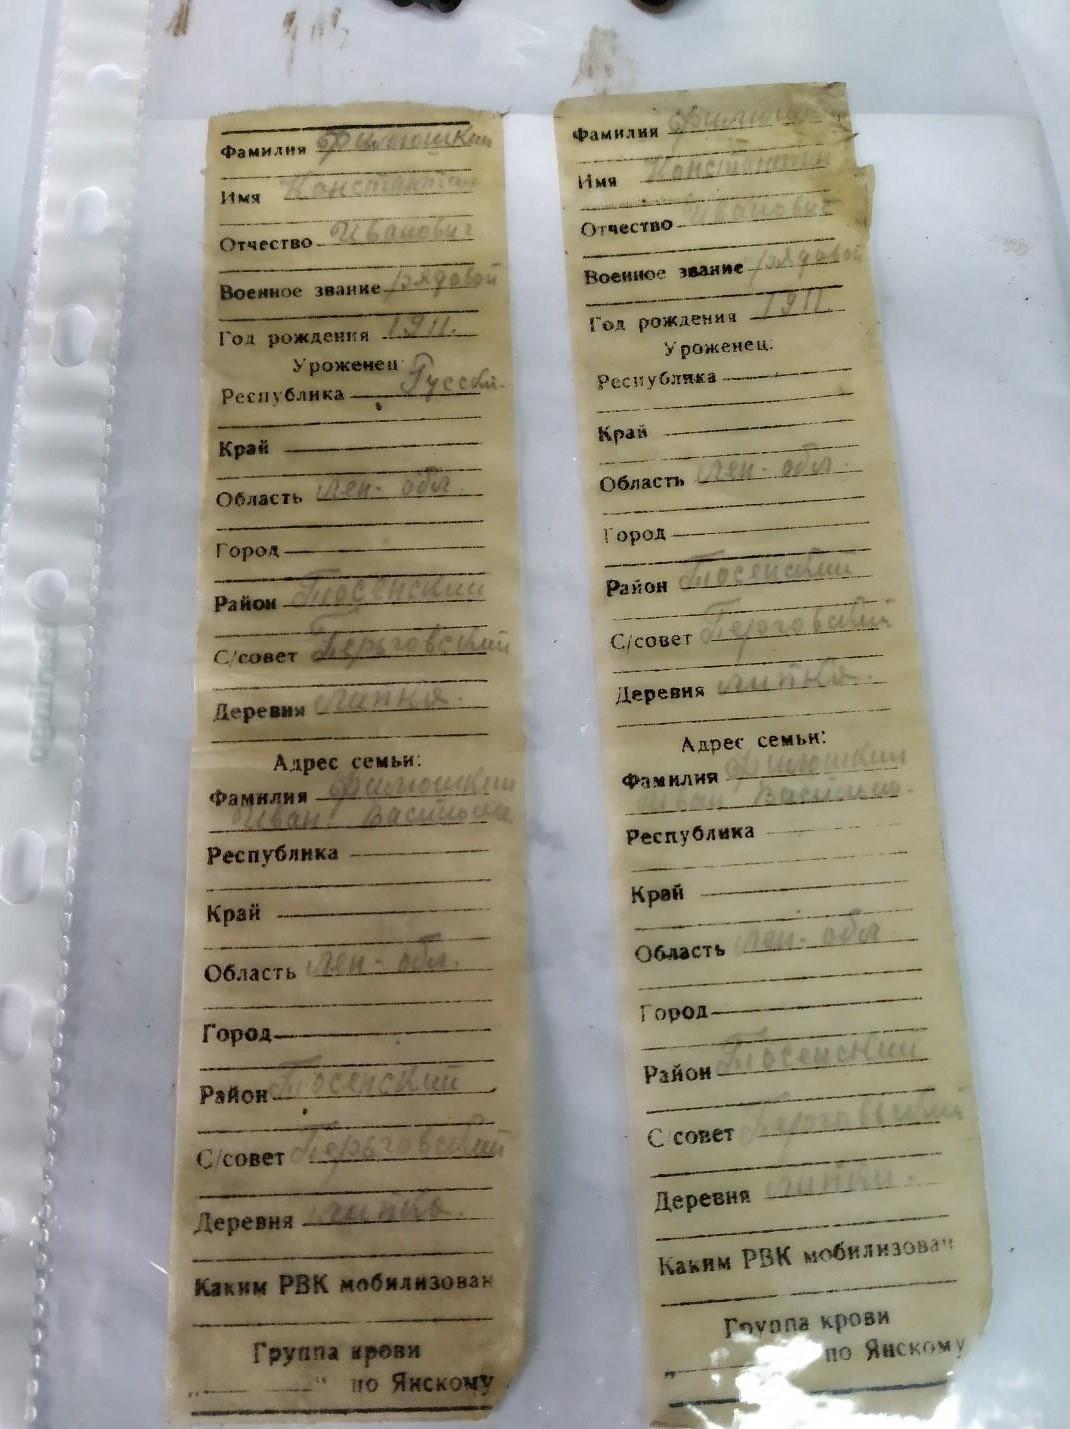 Фамилия Филюшкин
Имя Константин
Отчество Иванович
Военное звание рядовой
Год рождения 1911.
Уроженец:
Республика Русский.
Край
Область Лен. обл.
Город
Район Тосенский
С/совет
Деревня Липка.
Адрес семьи:
Фамилия Филюшкин
Иван
Республика
Край
Область Лен. обл.
Город
Район Тосенский
С/совет
Деревня Липка.
Каким РВК мобилизован
Группа крови
„ “ по Янскому
Фамилия Филюшкин
Имя Константин
Отчество Иванович
Военное звание рядовой
Год рождения 1911.
Уроженец:
Республика
Край
Область Лен. обл.
Город
Район Тосенский
С/совет
Деревня Липка.
Адрес семьи:
Фамилия Филюшкин
Иван
Республика
Край
Область Лен. обл
Город
Район Тосенский
С/совет
Деревня Липки.
Каким РВК мобилизован
Группа крови
„ по Янскому